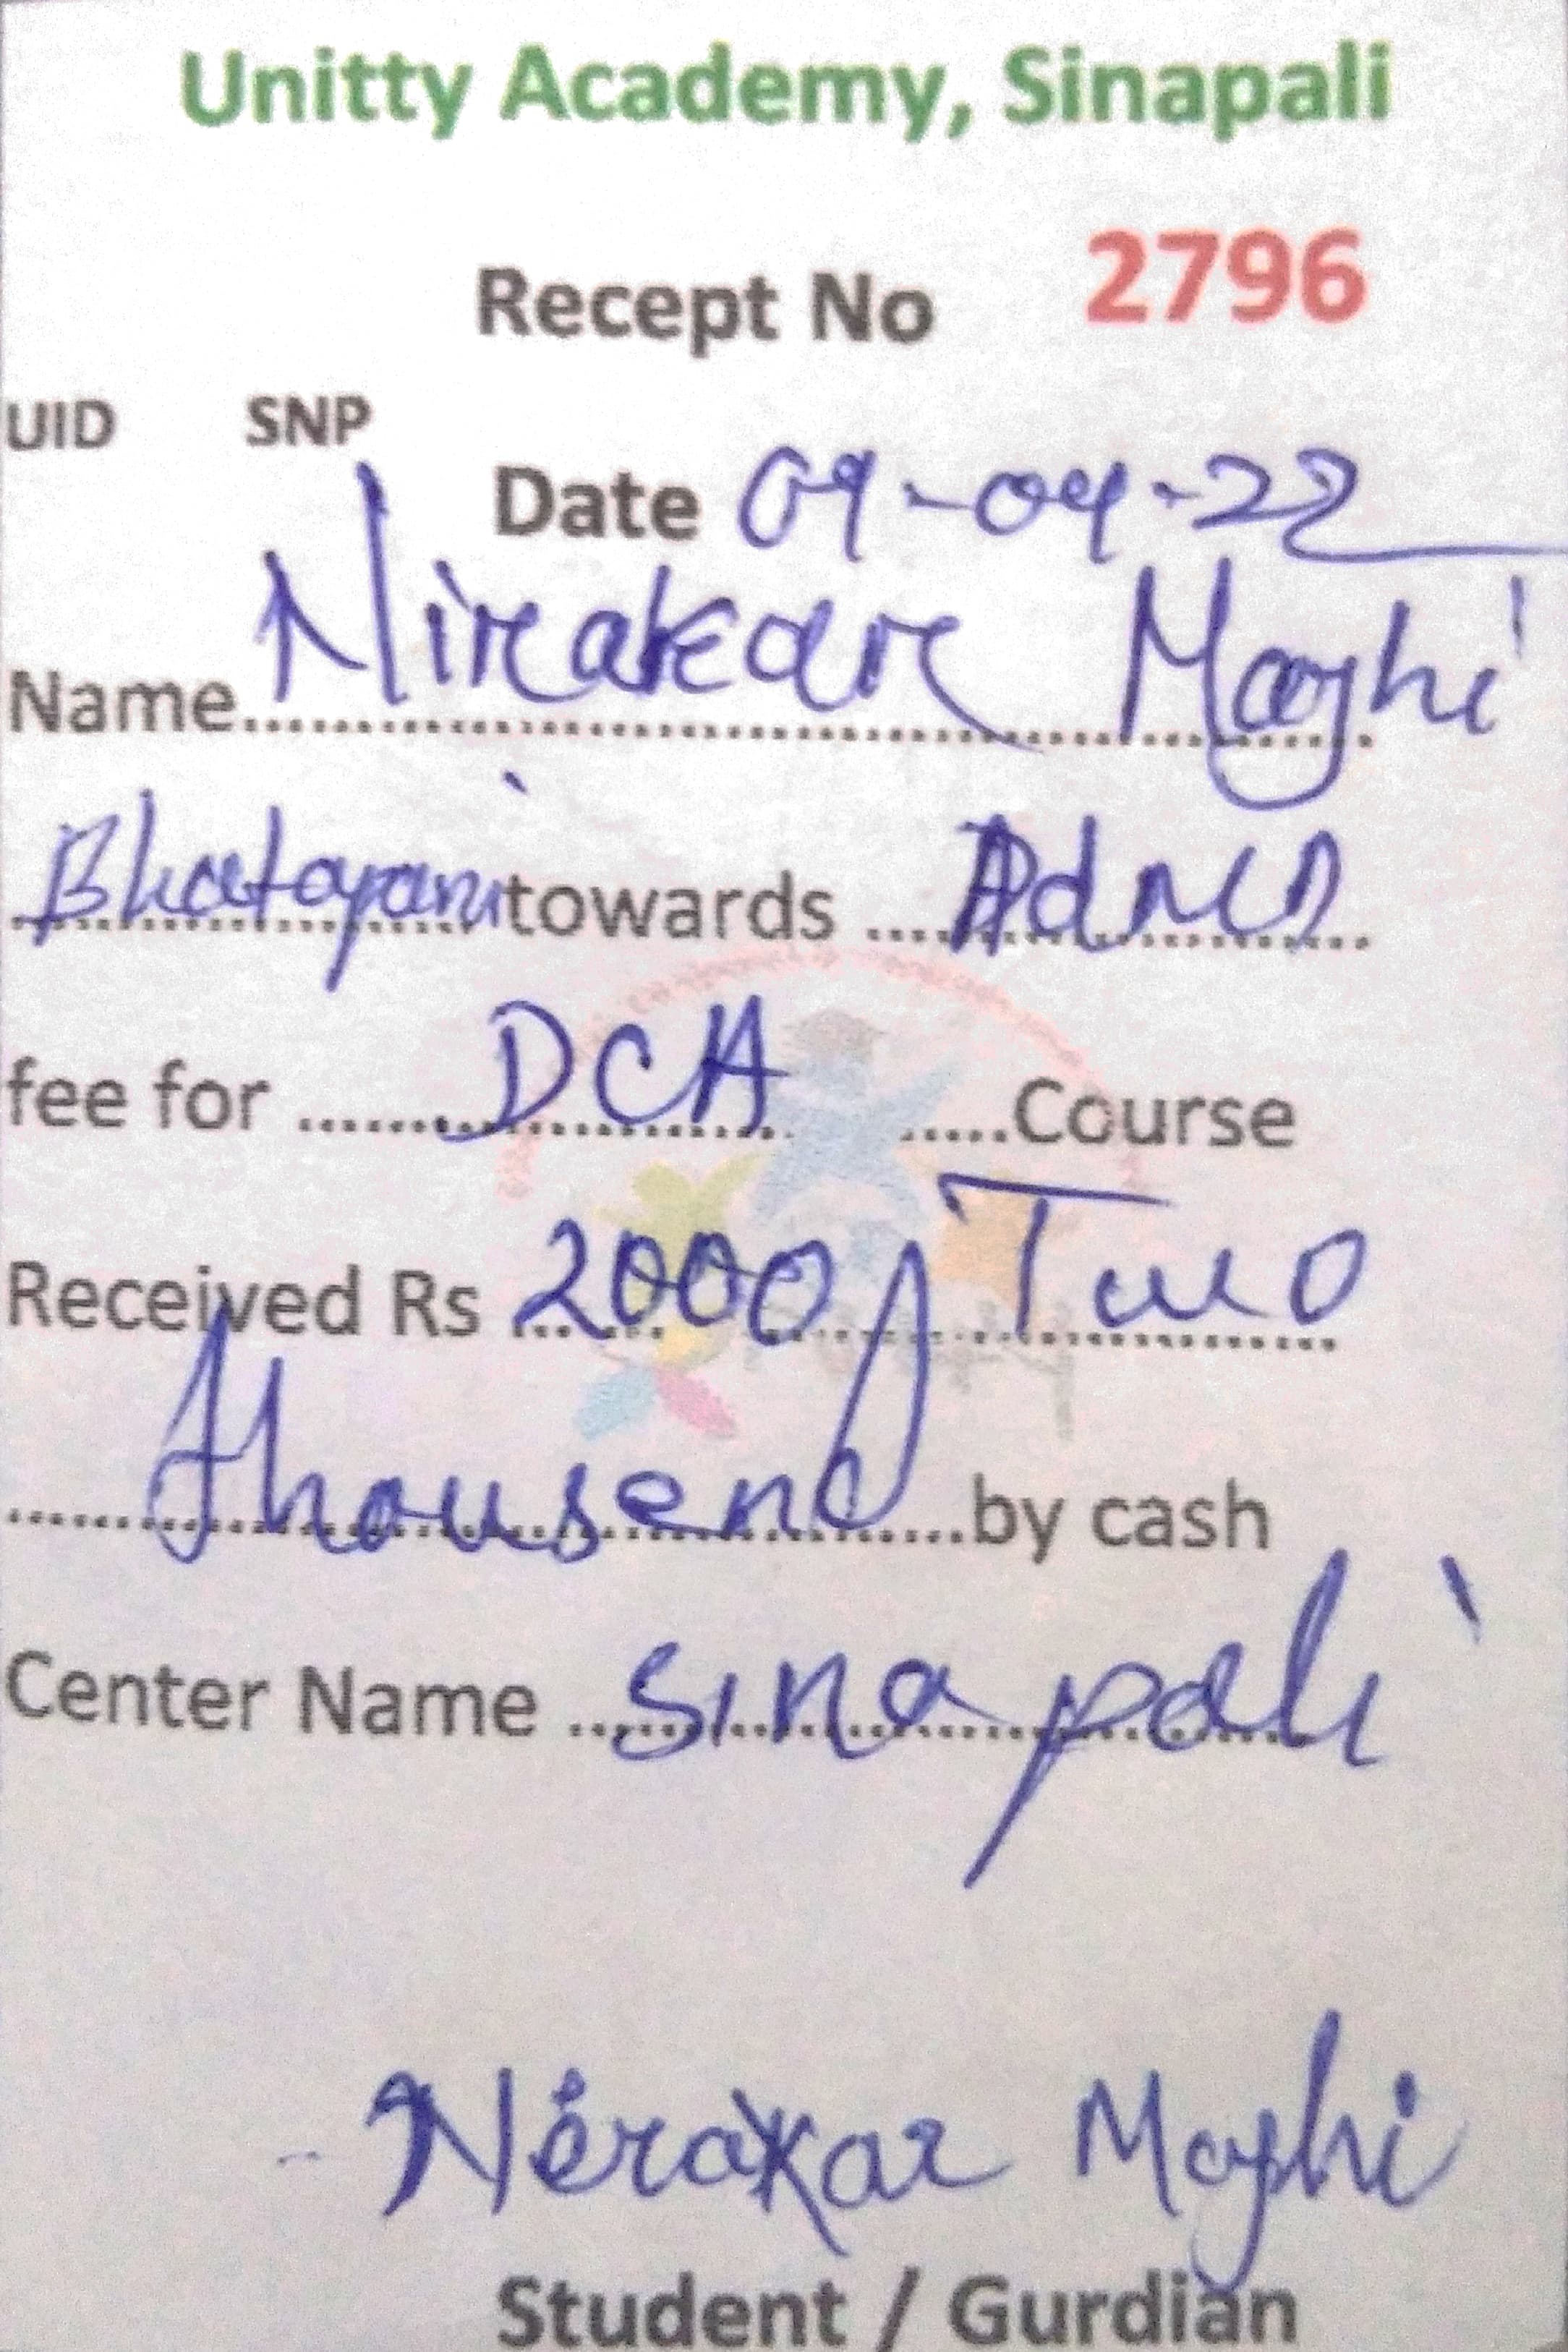 Unitty Academy, Sinapali
Recept No 2796
UID SNP
Date 09-04-22
Name Nirakar Maghi
Bhatapani towards Admn
fee for DCA Course
Received Rs 2000/ Two
thousend by cash
Center Name Sinapali
Nerakar Maghi
Student / Gurdian